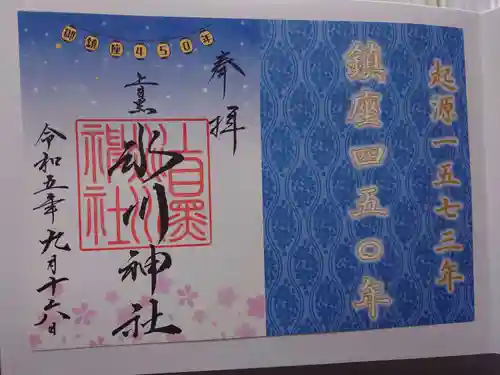 起源一五七三年
鎮座四五〇年
御鎮座450年
奉拝
上目黒
氷川神社
上目黒氷川神社
令和五年九月十六日